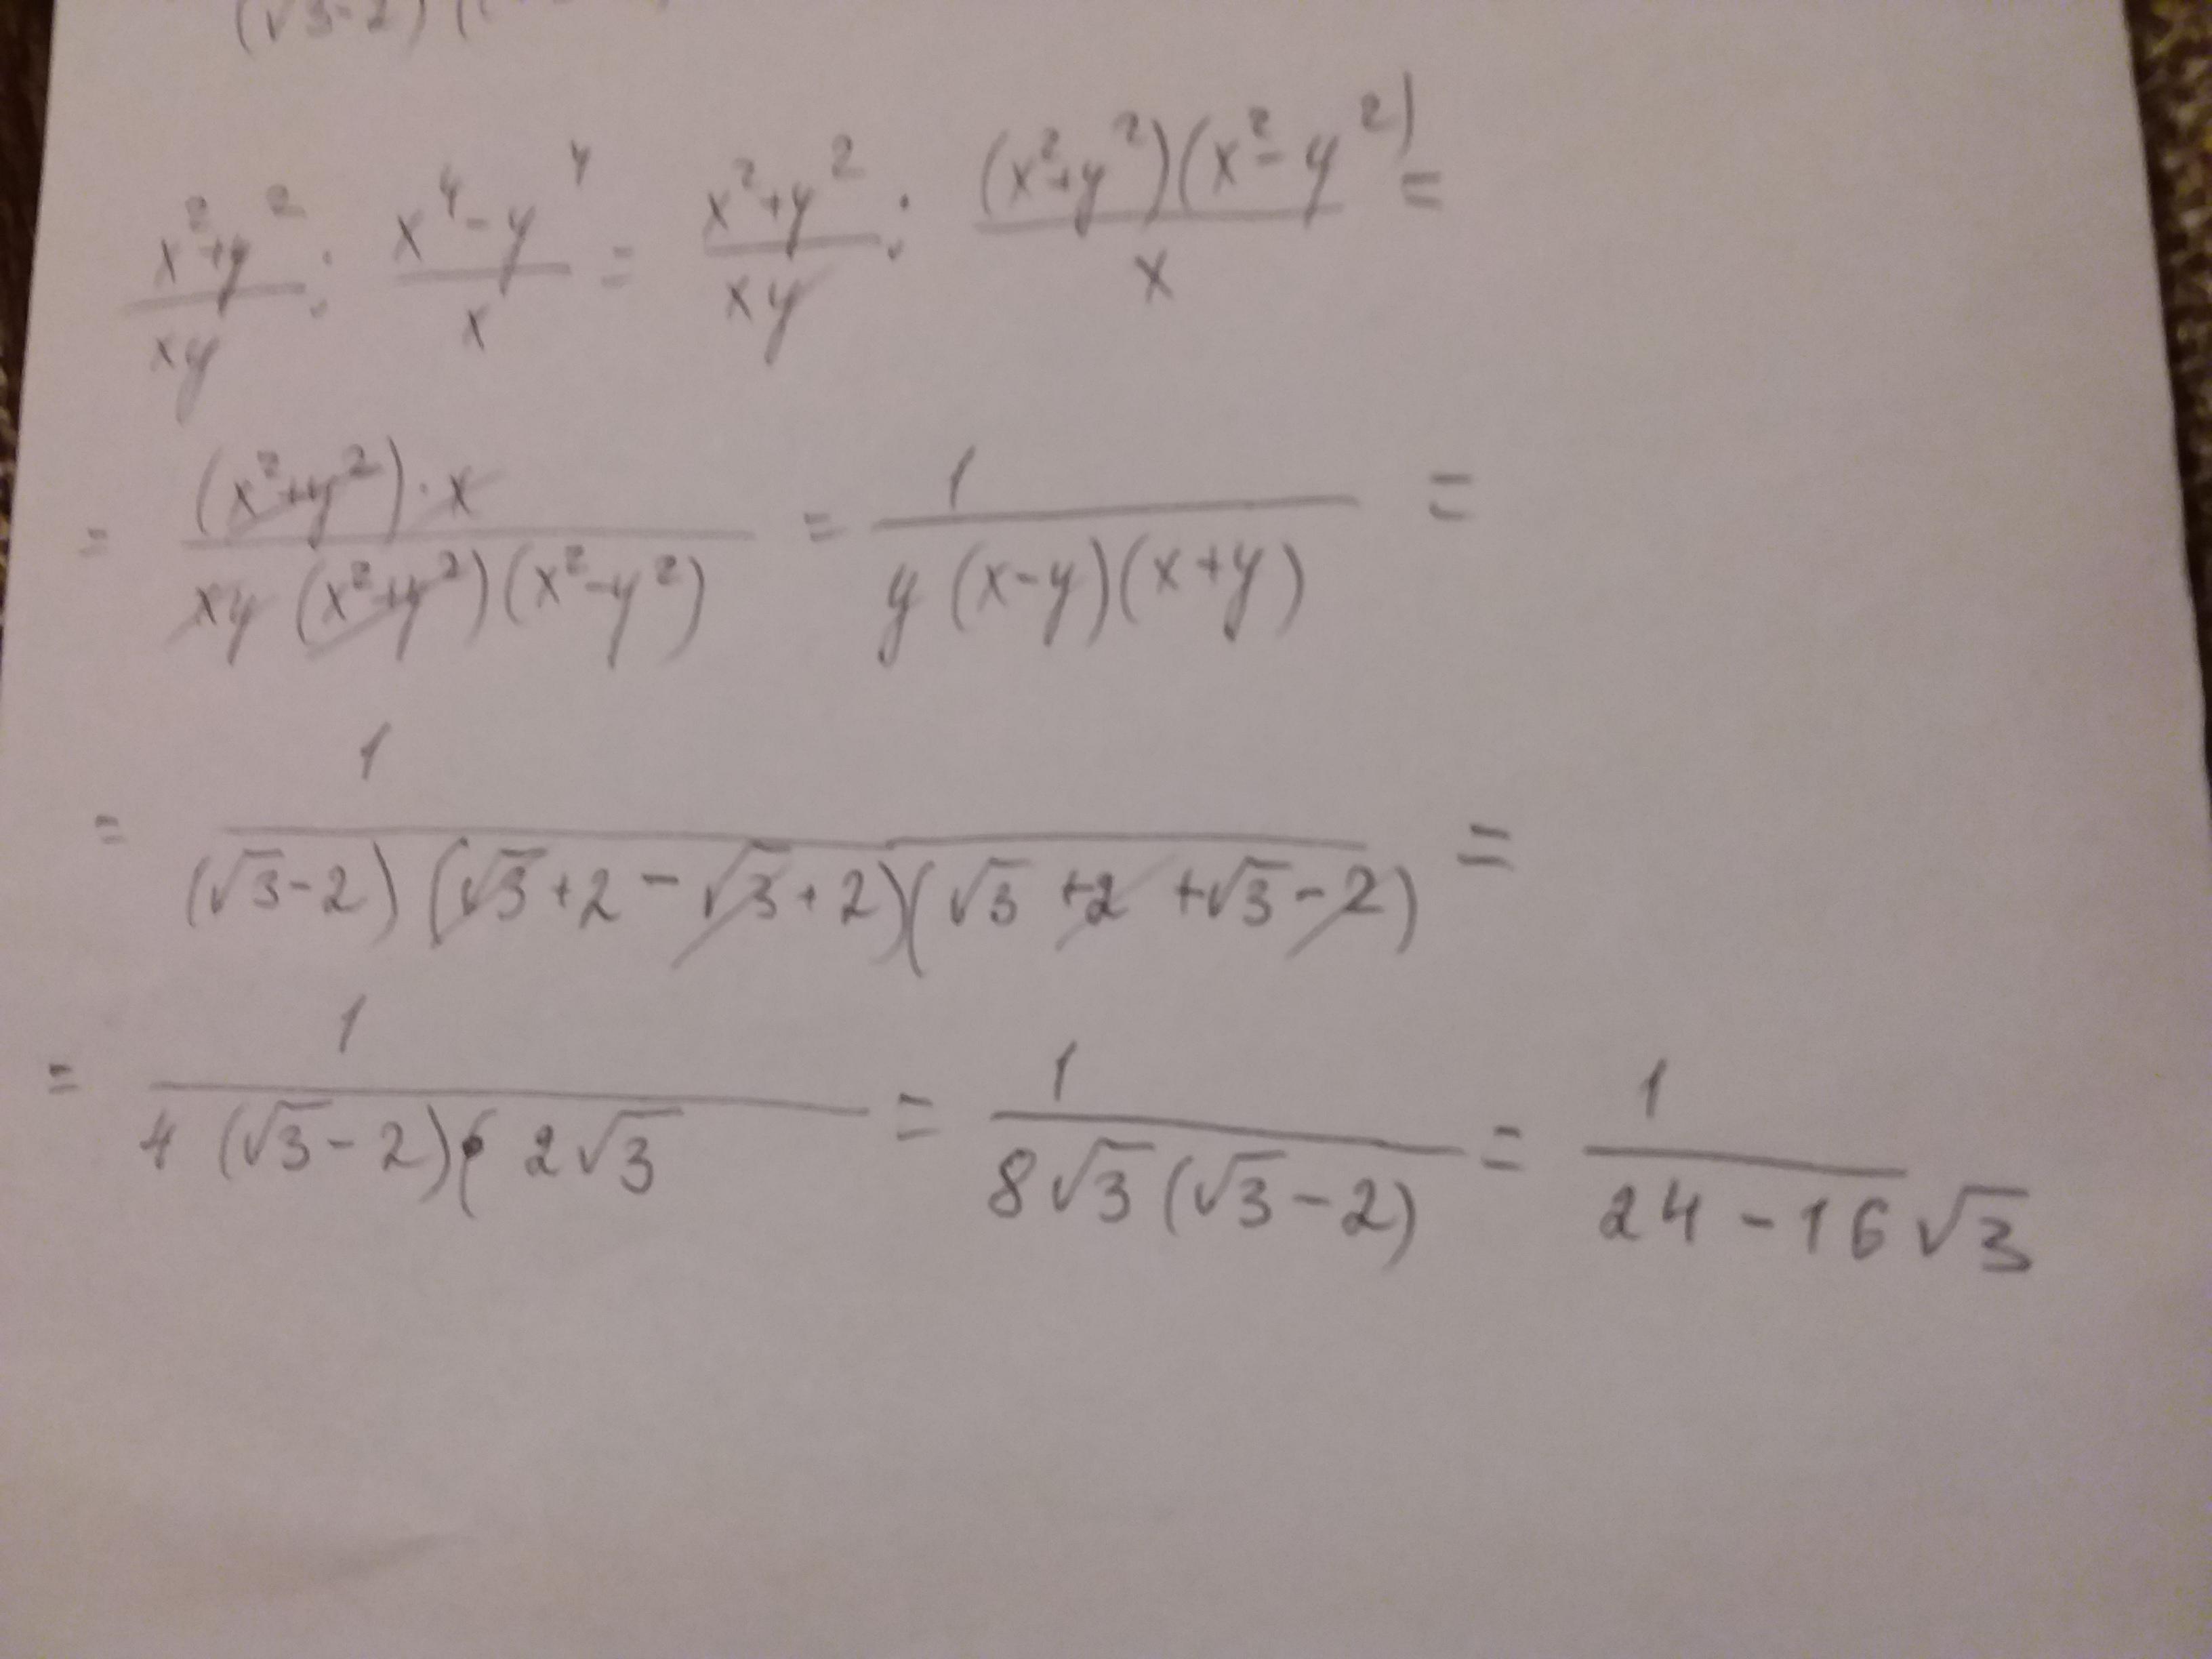 (√3-2)(
(x²+y²)/(xy) : (x⁴-y⁴)/x = (x²+y²)/(xy) : ((x²+y²)(x²-y²))/x =
= ((x²+y²)·x)/(xy(x²+y²)(x²-y²)) = 1/(y(x-y)(x+y)) =
= 1/((√3-2)(√3+2-√3+2)(√3+2+√3-2)) =
= 1/(4(√3-2)(2√3) = 1/(8√3(√3-2)) = 1/(24-16√3)